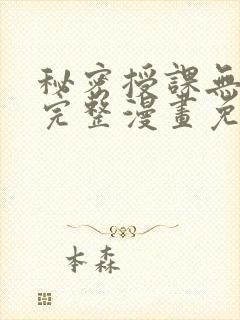 秘密授課無
完整漫畫免
本森